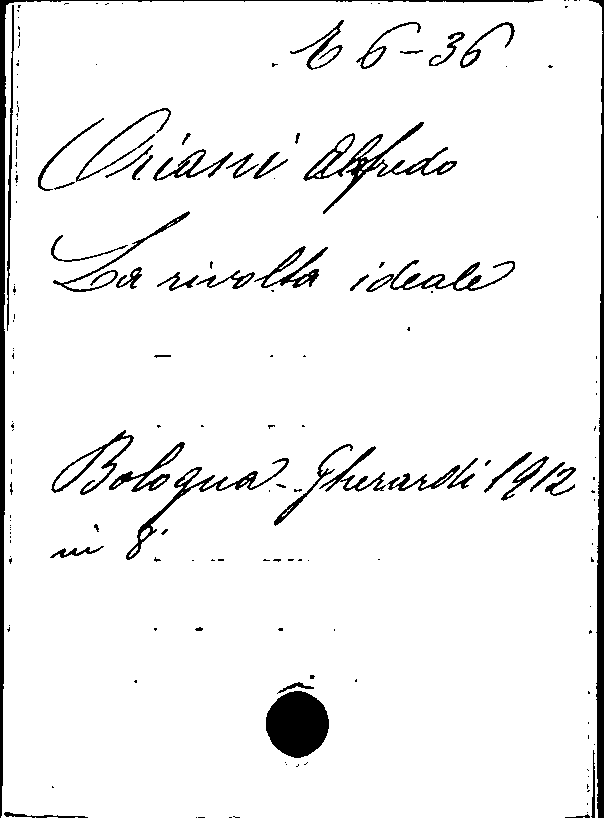 E 6-36
Oriani Alfredo
La rivolta ideale
Bologna - Gherardi 1912
in 8°